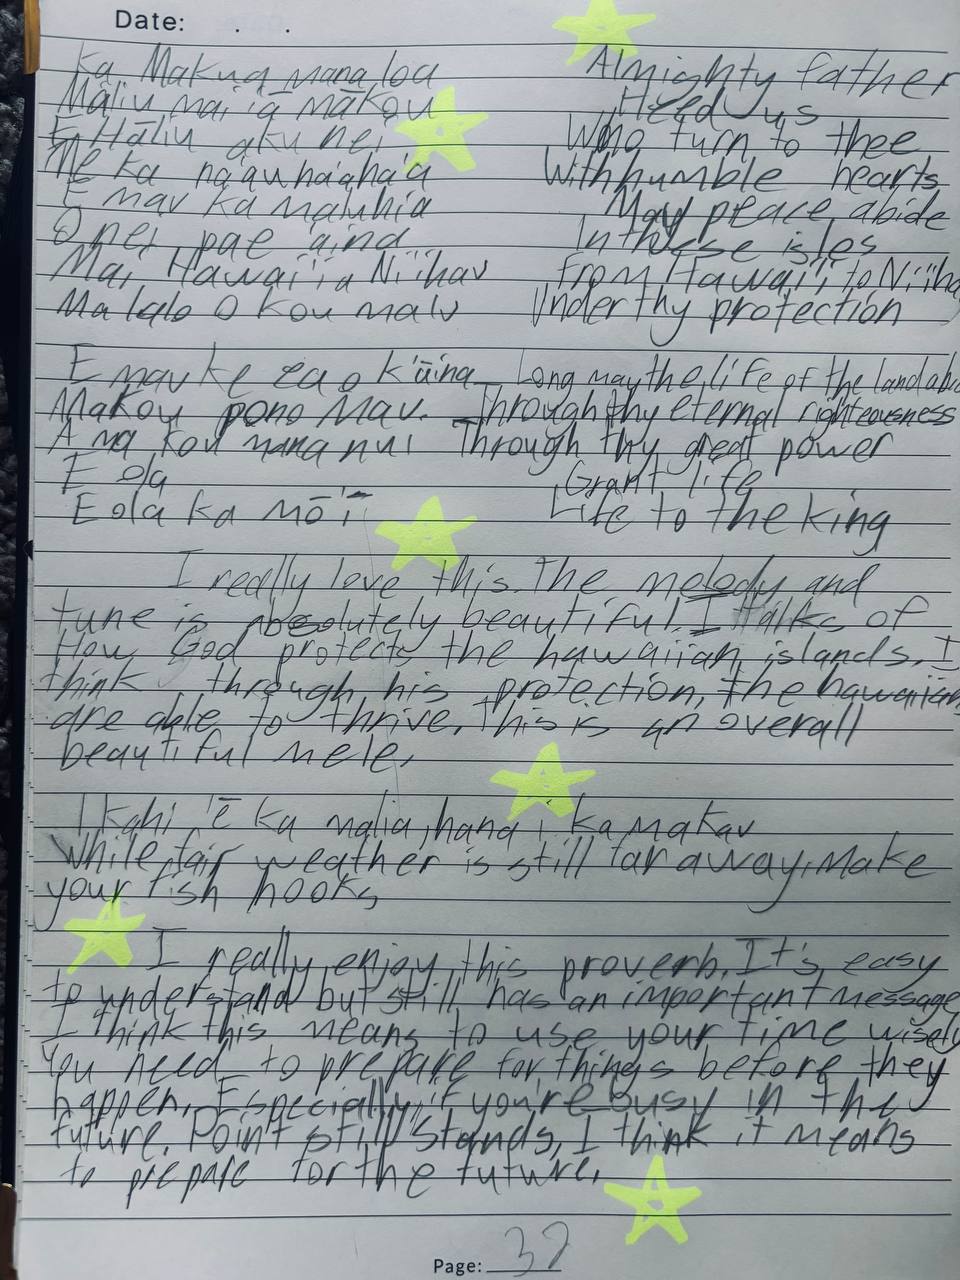 Date: . .
Ka Makua mana loa Almighty father
Māliu mai iā mākou Heed us
E Hāliu aku nei Who turn to thee
Me ka na'au ha'aha'a With humble hearts
E mau ka maluhia May peace abide
O nei pae 'āina In these isles
Mai Hawai'i a Ni'ihau From Hawai'i to Ni'iha
Malalo O kou malu Under thy protection
E mau ke ea o k'āina Long may the life of the land abi
Makou pono Mau. Through thy eternal righteousness
A ma kou mana nui Through thy great power
E ola Grant life
E ola ka mō'ī Life to the king
I really love this. The melody and
tune is absolutely beautiful. I talks of
How God protects the hawaiian islands. I
think through his protection, the hawaiians
are able to thrive. This is an overall
beautiful mele.
I kahi 'ē ka malia, hana i ka makau
While fair weather is still far away, Make
your fish hooks
I really enjoy this proverb. It's easy
to understand but still has an important message
I think this means to use your time wisely
You need to prepare for things before they
happen. Especially if you're busy in the
future. Point still stands, I think it means
to prepare for the future.
Page: 32